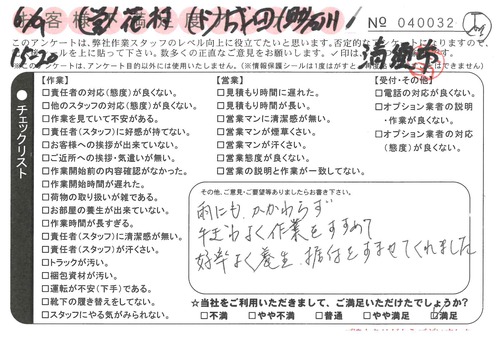 No 040032
このアンケートは、弊社作業スタッフのレベル向上に役立てたいと思います。否定的なアンケートになりますので、
数多くの正直なご意見をお願いします。
※このアンケートは、アンケート目的以外には使用いたしません。
チェックリスト
【作業】
□責任者の対応(態度)が良くない。
□他のスタッフの対応(態度)が良くない。
□作業を見ていて不安がある。
□責任者(スタッフ)に好感が持てない。
□お客様への挨拶が出来ていない。
□ご近所への挨拶・気遣いが無い。
□作業開始前の内容確認がなかった。
□作業開始時間が遅れた。
□荷物の取り扱いが雑である。
□お部屋の養生が出来ていない。
□作業時間が長すぎる。
□責任者(スタッフ)に清潔感が無い。
□責任者(スタッフ)が汗くさい。
□トラックが汚い。
□梱包資材が汚い。
□運転が不安(下手)である。
□靴下の履き替えをしてない。
□スタッフにやる気がみられない。
【営業】
□見積もり時間に遅れた。
□見積もり時間が長い。
□営業マンに清潔感が無い。
□営業マンが煙草くさい。
□営業マンが汗くさい。
□営業態度が良くない。
□営業の説明と作業が一致してない。
【受付・その他】
□電話の対応が良くない。
□オプション業者の説明
・作業が良くない。
□オプション業者の対応
(態度)が良くない。
その他、ご意見・ご要望等ありましたらお書き下さい。
雨にも かかわらず
手ぎわよく作業をすすめて
好率よく養生、据付をすませてくれました
☆当社をご利用いただきまして、ご満足いただけてしょうか？
□不満 □やや不満 □普通 □やや満足 □満足